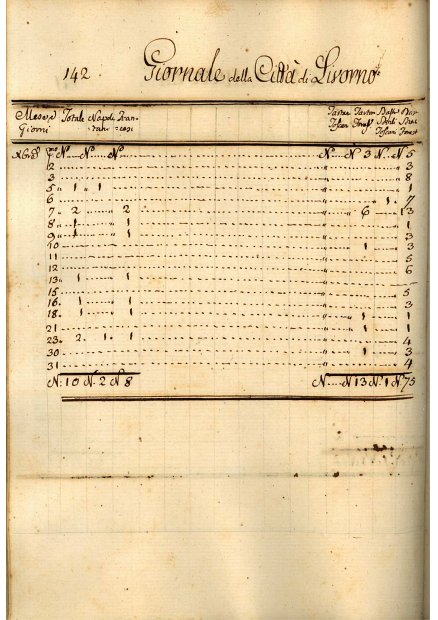 142. Giornale della Città di Livorno
Mese, e Totale Napoli Fran- Tartne Tartne Bast.i Bast.i
Giorni tane cesi Toscan Forest Toscani Forest
1 N.º N.º N.º N. N. 3 N. N. 5
2 3
3 8
5 1 1 1
6 1 7
7 2 2 6 3
8 1 1 1
9 1 1 3
10 1 3
11 5
12 6
13 1 1
15 5
16 1 1 3
18 1 1 1 1
21 1 1
23 2 1 1 4
30 1 3
31 4
N. 10 N. 2 N. 8 N. N. 13 N. 1 N. 75